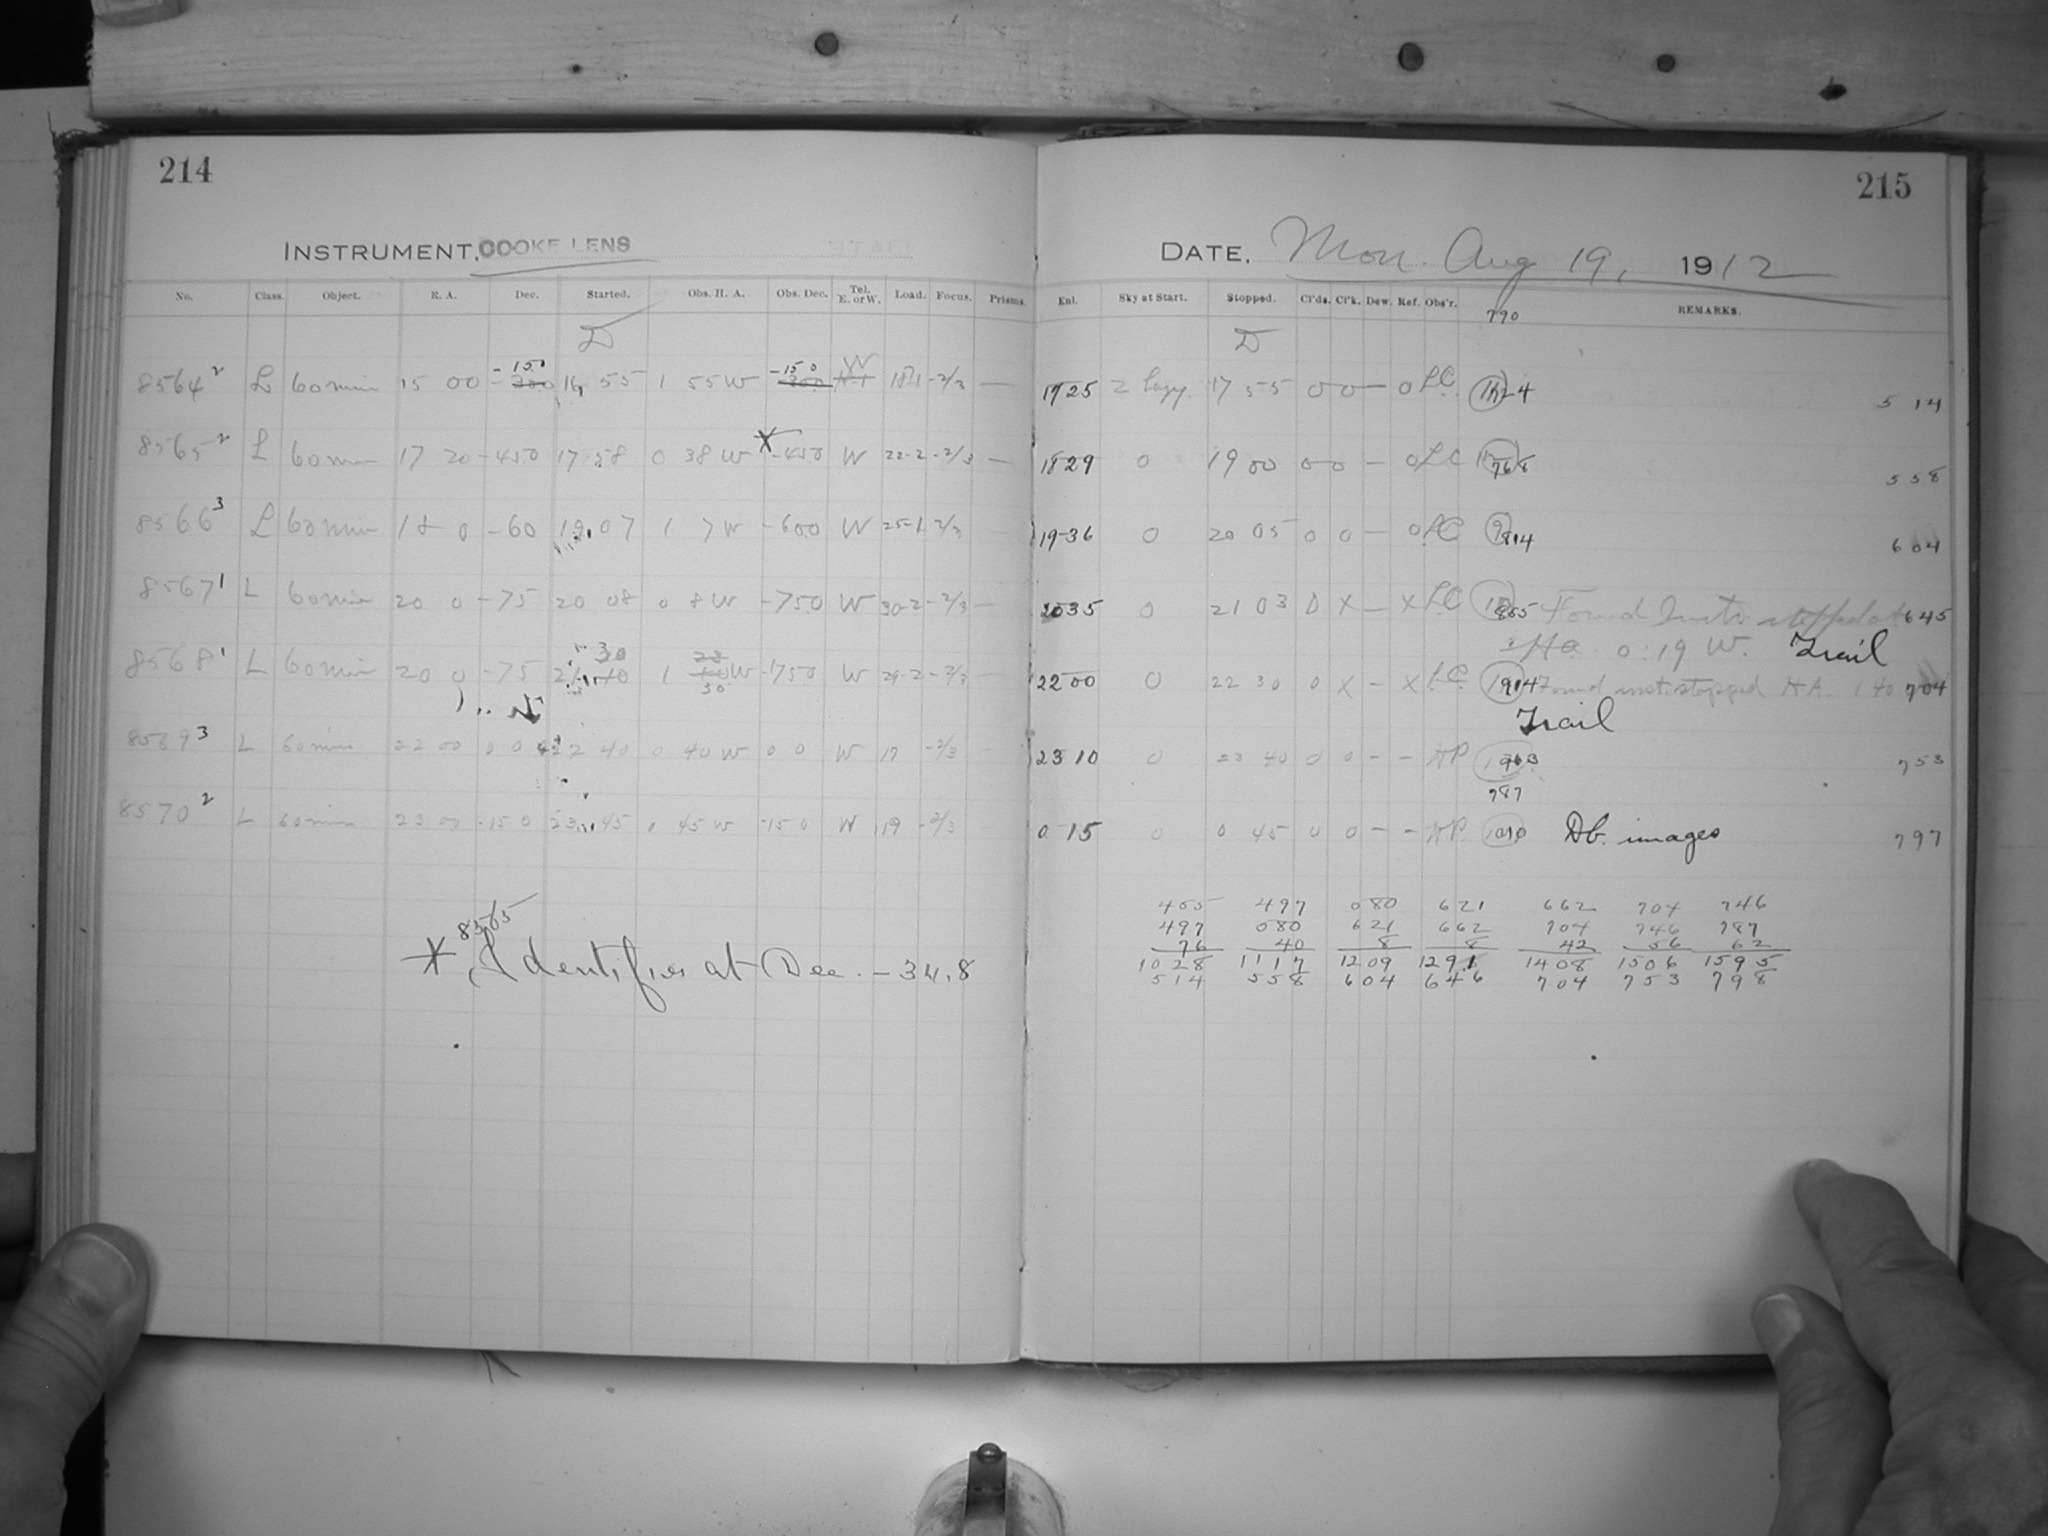 214
215
INSTRUMENT, COOKE LENS
DATE, Mon. Aug 19, 1912
No. Class. Object. R. A. Dec. Started. Obs. H. A. Obs. Dec. Tel. E. or W. Load. Focus. Prisms. Enl. Sky at Start. Stopped. Cl'ds. Cl'k. Dew. Ref. Obs'r. REMARKS.
790
D D
8564 2 L 60 min 15 00 -15.0 16 55 1 55 W -15 0 W 18-1 -2/3 — 17 25 2 hazy 17 55 0 0 — 0 LC 514
8565 2 L 60 min 17 20 -45 0 17 58 0 38 W * -45 0 W 22-2 -2/3 — 18 29 0 19 00 0 0 — 0 LC 768 558
8566 3 L 60 min 18 0 -60 19 07 1 7 W -60 0 W 25-1 -2/3 — 19-36 0 20 05 0 0 — 0 LC 814 604
8567 1 L 60 min 20 0 -75 20 08 0 8 W -75 0 W 30-2 -2/3 — 20 35 0 21 03 0 X — X LC 855 Found Instr. stopped at 645
HA 0:19 W. Trail
8568 1 L 60 min 20 0 -75 21 30 1 30 W -75 0 W 29-2 -2/3 22 00 0 22 30 0 X — X LC 914 Found inst. stopped HA. 1 40 704
Trail
8569 3 L 60 min 22 00 0 0 22 40 0 40 W 0 0 W 17 -2/3 23 10 0 23 40 0 0 — — HP 963 753
787
8570 2 L 60 min 23 00 -15 0 23 45 0 45 W -15 0 W 19 -2/3 0 15 0 0 45 0 0 — — HP 1010 Db. images 797
455 497 080 621 662 704 746
497 080 621 662 704 746 787
76 40 8 8 42 56 62
1028 1117 1209 1291 1408 1506 1595
514 558 604 646 704 753 798
8565
* Identifies at Dec. -34.8